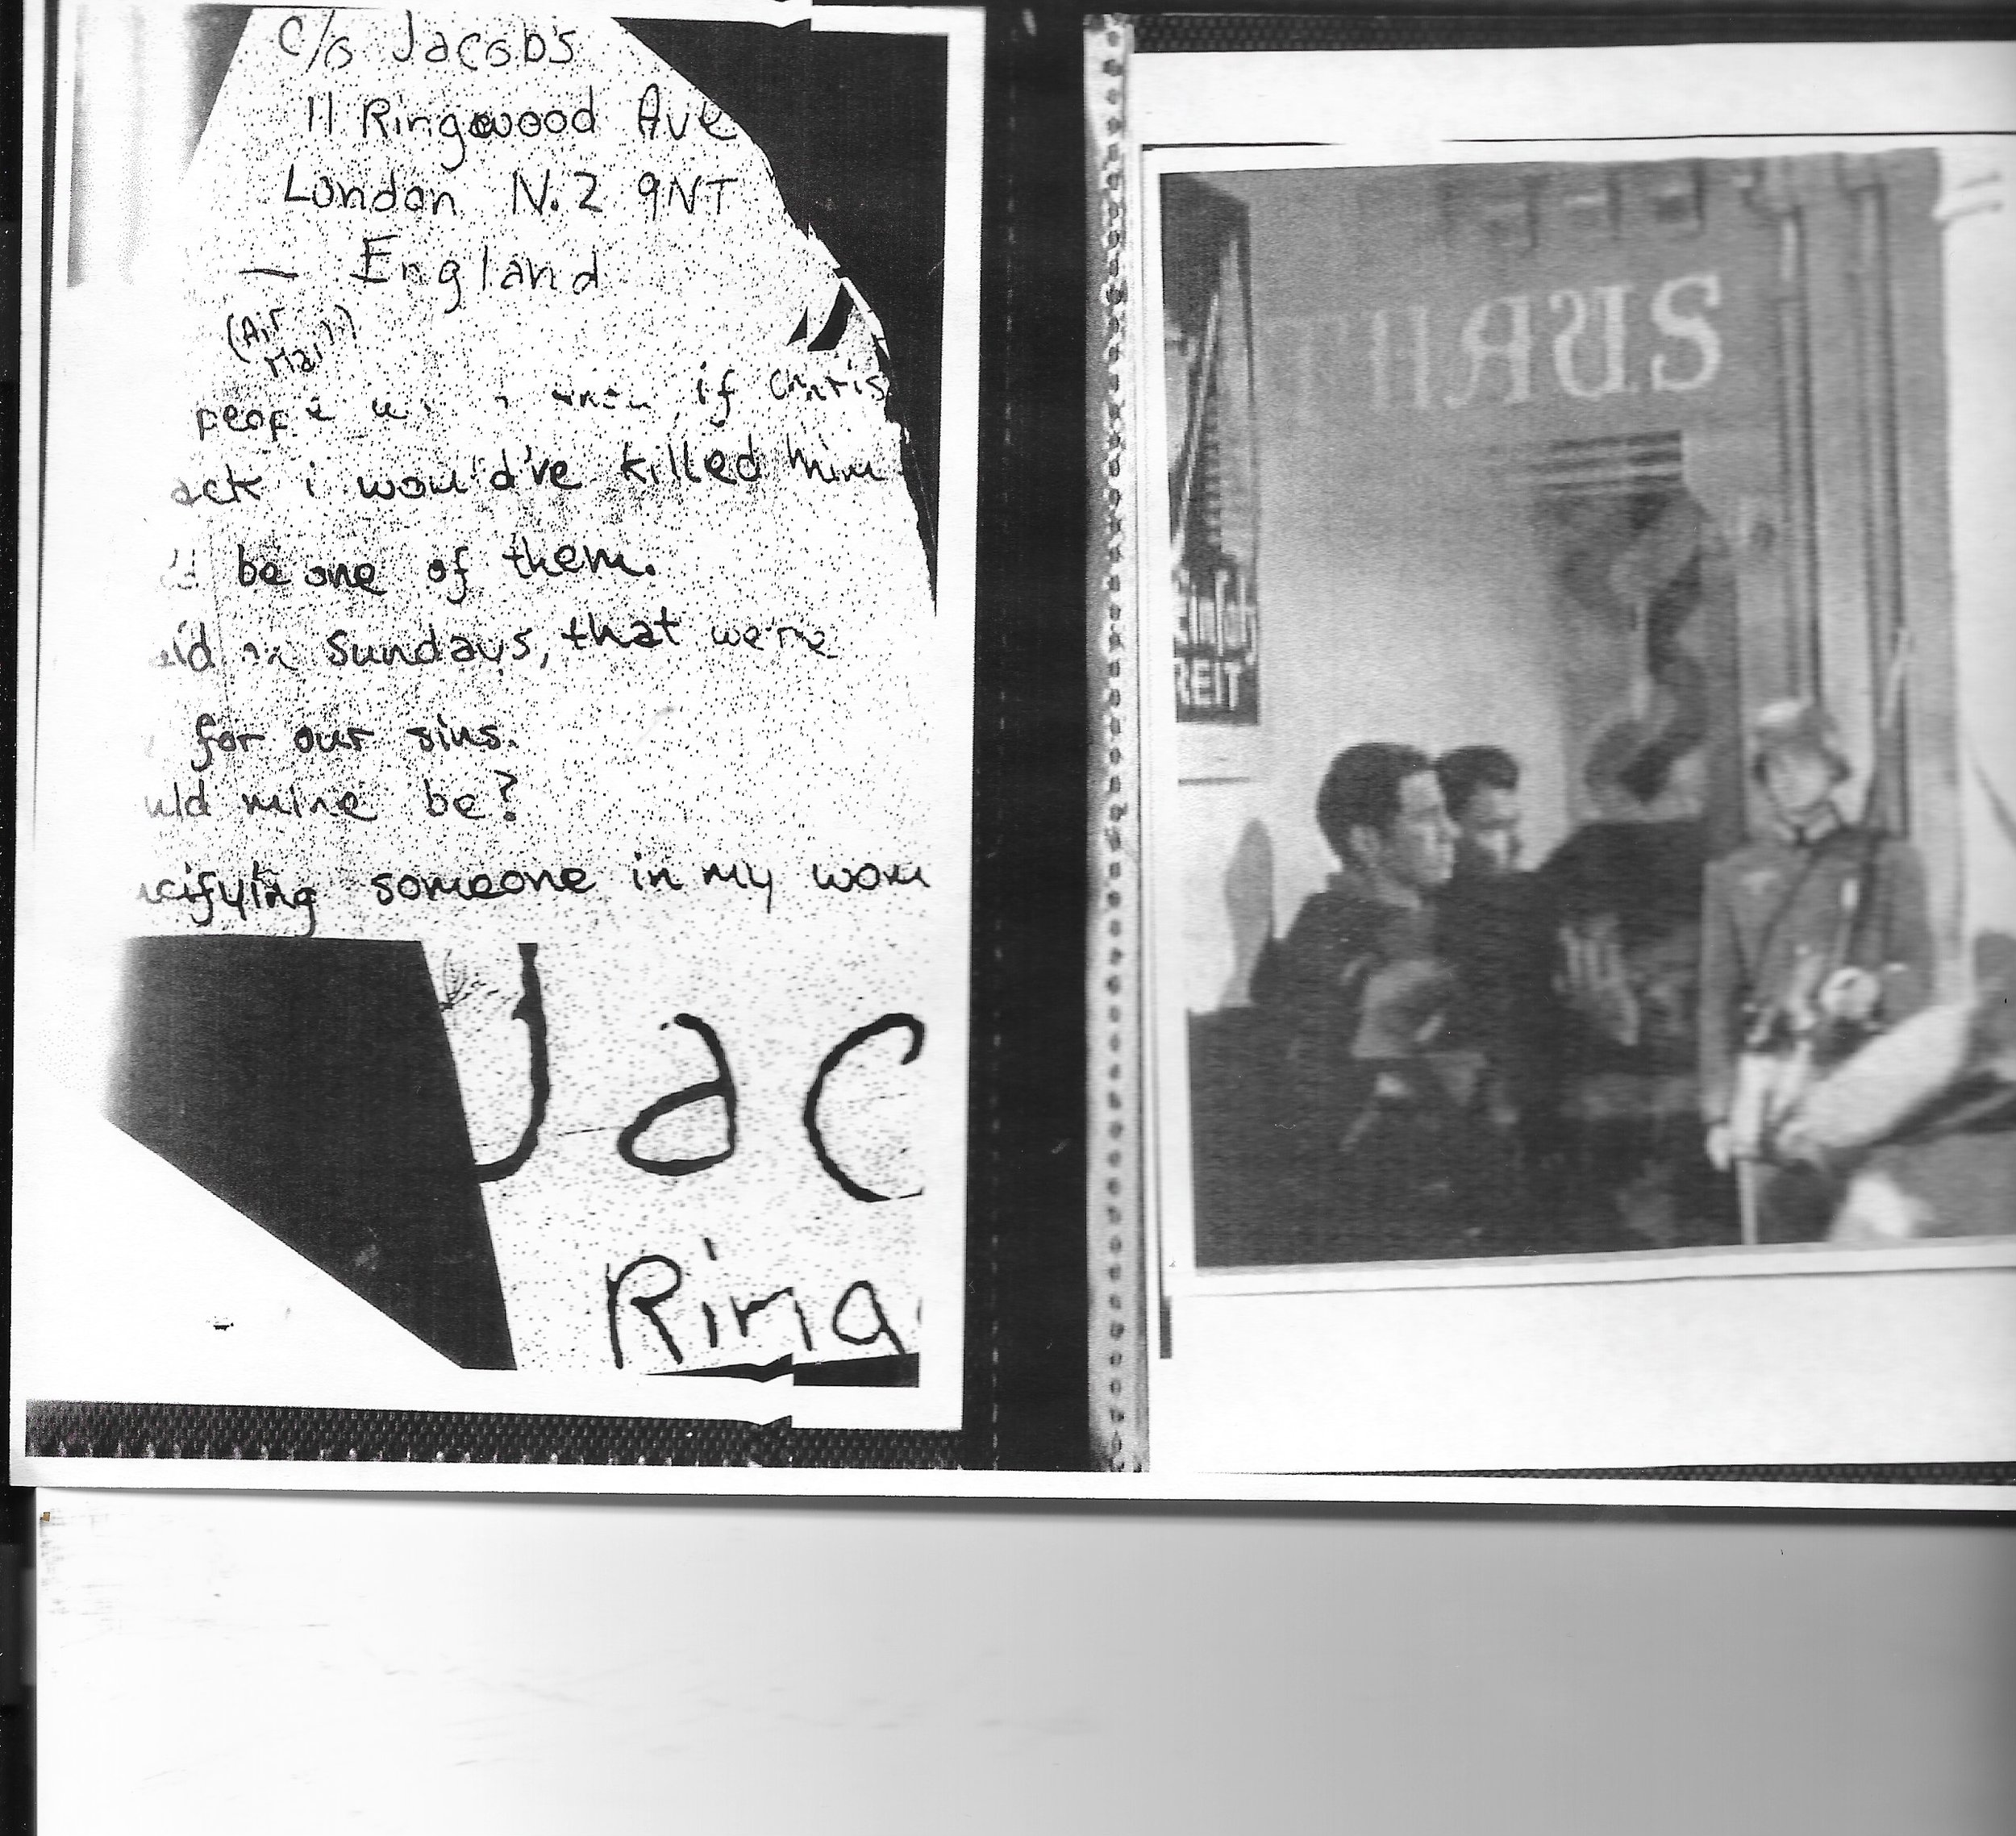 c/o Jacobs
11 Ringwood Ave
London N.2 9NT
— England
(Air
Mail)
if Chris
ack i would've killed him
be one of them.
Sundays, that were
for our sins.
uld mine be?
cifying someone in my wom
Jac
Ring
HAUS
REIT